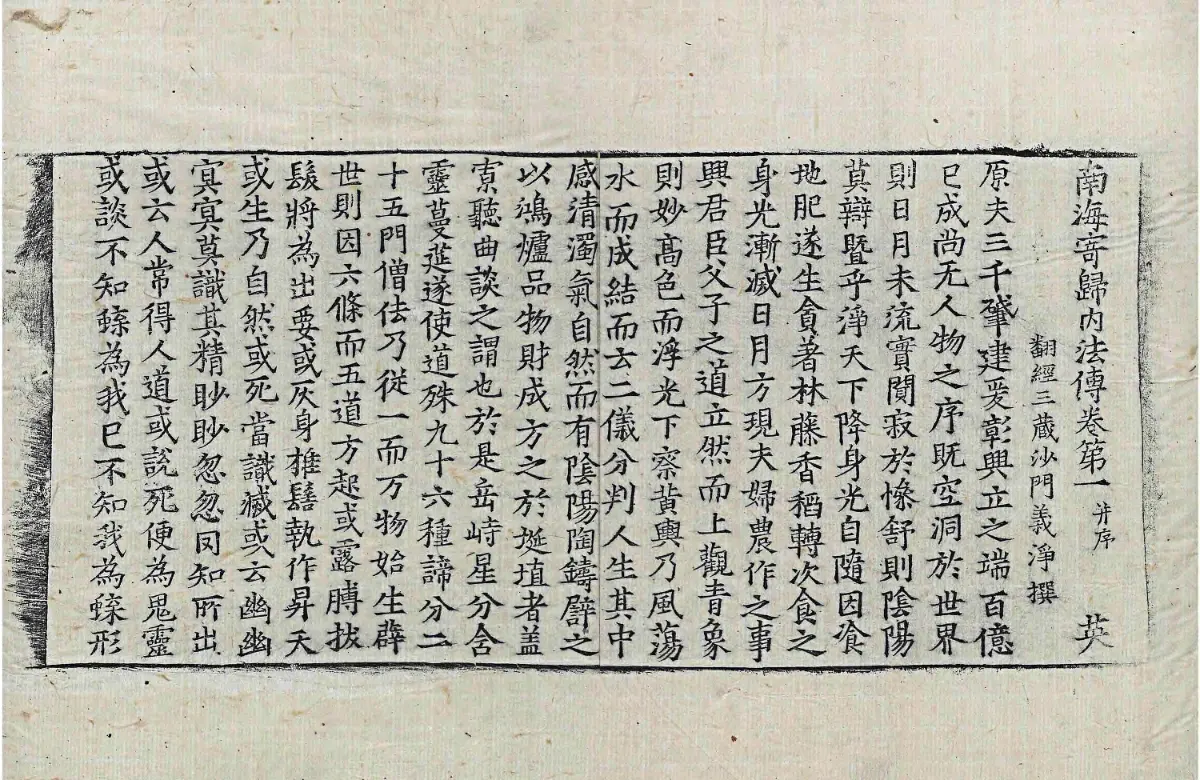 南海寄歸內法傳卷第一 并序 英
翻經三藏沙門義淨撰
原夫三千肇建爰彰興立之端百億
已成尚无人物之序既空洞於世界
則日月未流實閴寂於慘舒則陰陽
莫辯暨乎淨天下降身光自隨因飡
地肥遂生貪著林藤香稻轉次食之
身光漸滅日月方現夫婦農作之事
興君臣父子之道立然而上觀青象
則妙高色而浮光下察黃輿乃風蕩
水而成結而云二儀分判人生其中
感清濁氣自然而有陰陽陶鑄譬之
以鴻爐品物財成方之於埏埴者盖
寡聽曲談之謂也於是岳峙星分含
靈蔓莚遂使道殊九十六種諦分二
十五門僧佉乃從一而万物始生薜
世則因六條而五道方起或露膊拔
髮將為出要或灰身椎髻執作昇天
或生乃自然或死當識滅或云幽幽
冥冥莫識其精眇眇忽忽罔知所出
或云人常得人道或說死便為鬼靈
或談不知蝶為我已不知我為蝶形